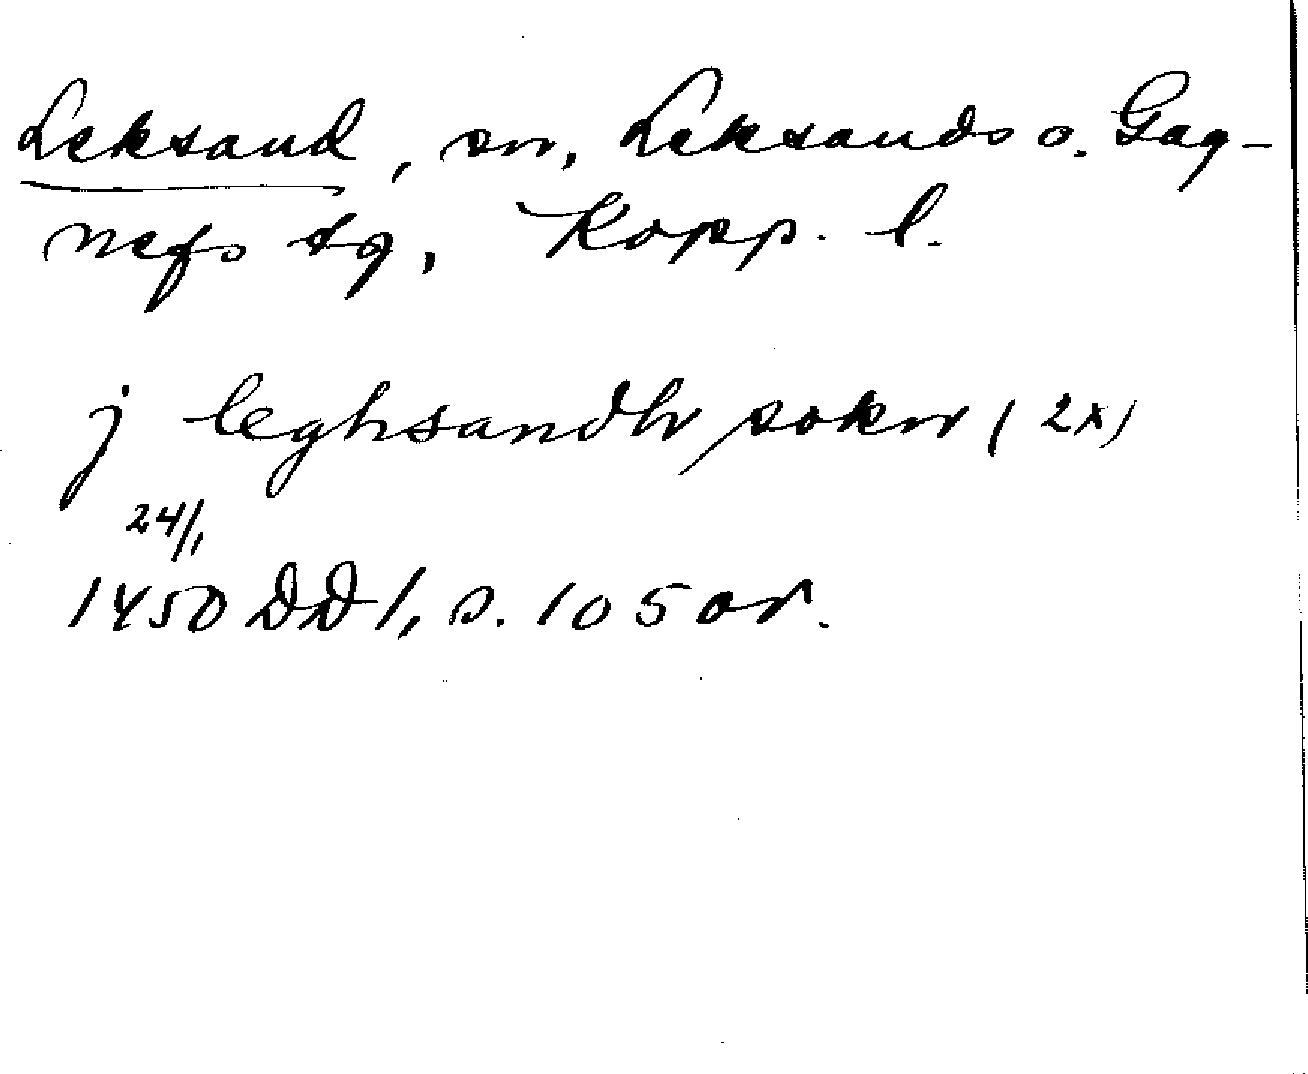 Leksand, sn, Leksands o. Gag-
nefs tg, Kopp. l.
j leghsandh sokn (2x)
24/1
1450 DD 1, s. 105 or.